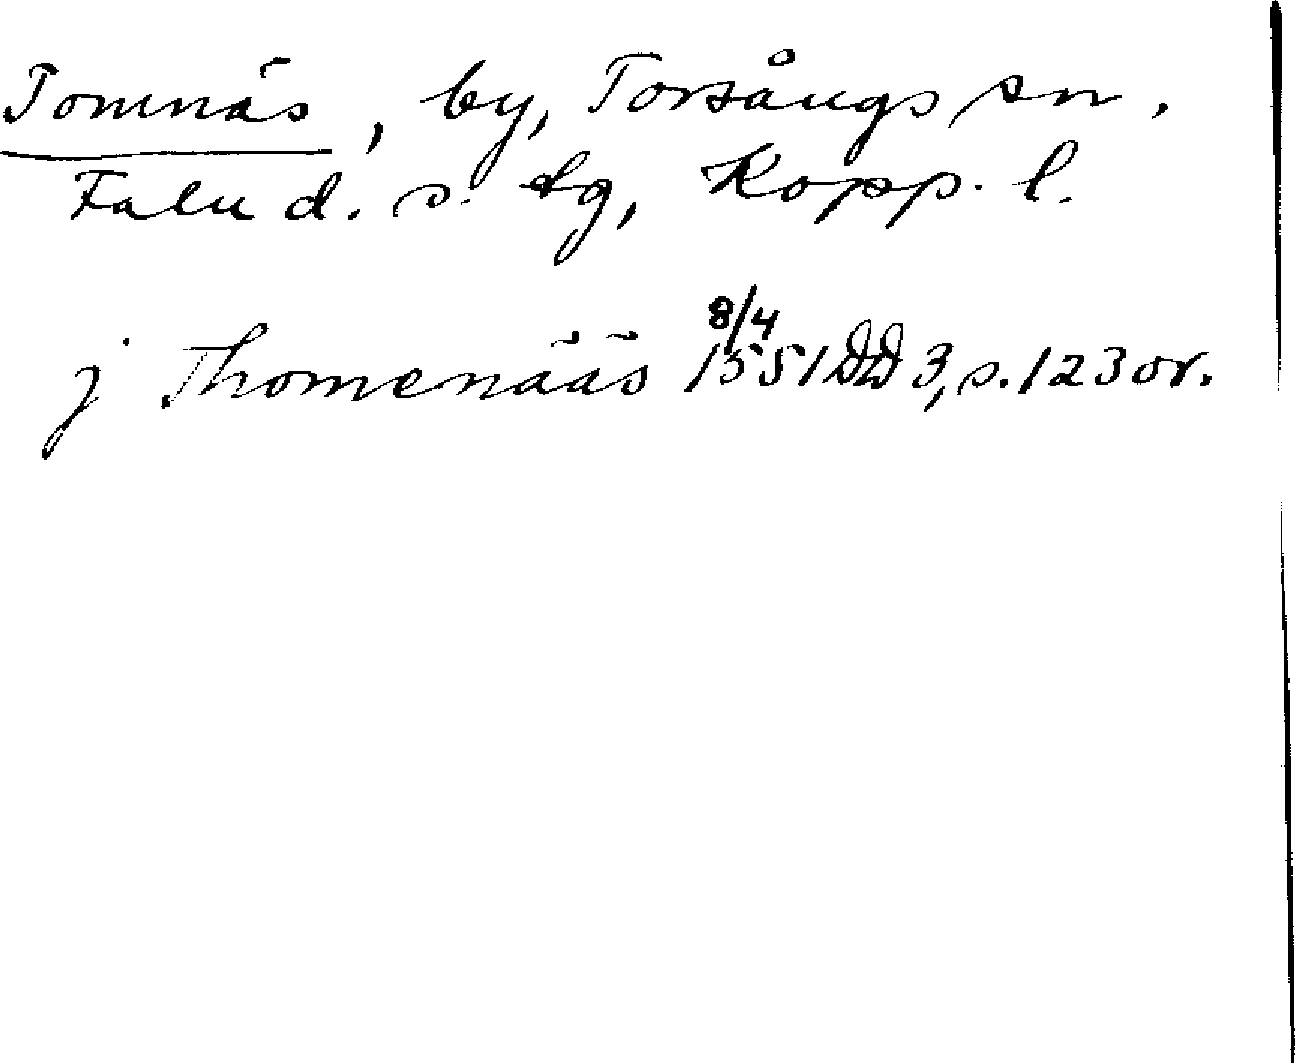 Tomnäs, by, Torsångs sn.
Falu d. s. tg, Kopp. l.
j Thomenääs 8/4 1551 DD 3, s. 123 or.